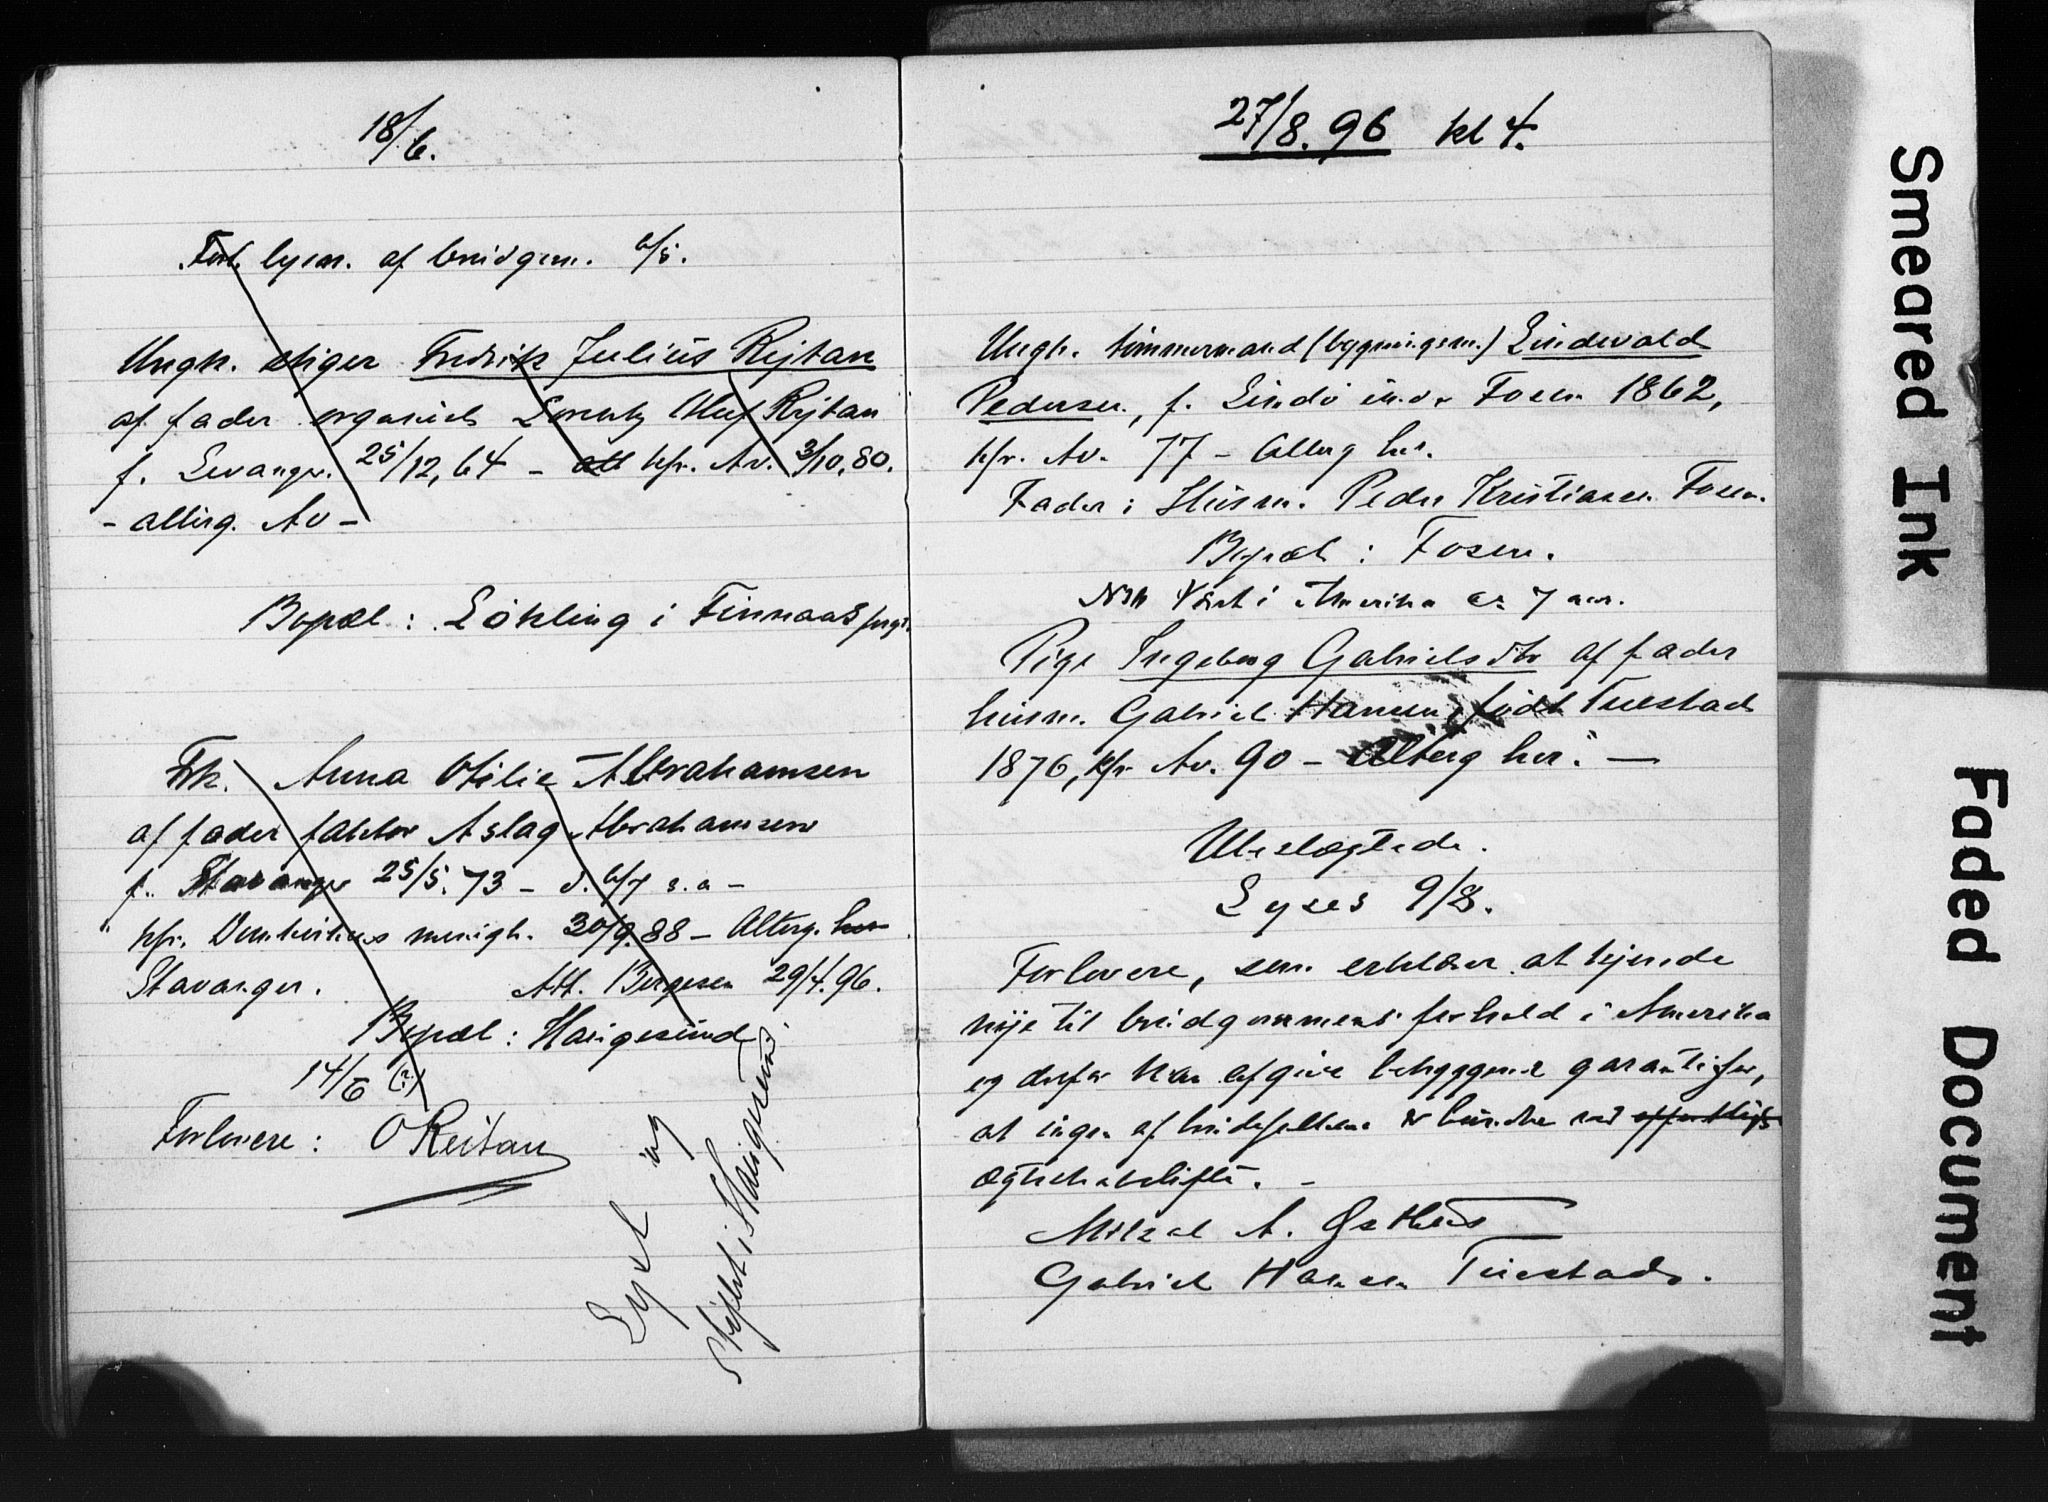 18/6.
Forl. lysn. af brudgom. 6/5.
Ungk. stiger Fredrik Julius Rejtan
af fader organist Lorentz Oluf Rejtan
f. Levanger 25/12, 64 – kfr. Av. 3/10, 80.
– alterg. Av –
Bopæl: Lökling i Finnaas prgj.
Frk. Anna Otilie Abrahamsen
af fader faktor Aslag Abrahamsen
f. Stavanger 25/5. 73 – d. 6/7 s. a –
kfr. Domkirkens menigh. 30/9. 88 – Alterg. her
Stavanger. Att. Børgesen 29/4. 96.
Bopæl: Haugesund
14/6 (?)
Forlovere: O Reitan
Lyst og
viflet i Haugesund.
27/8. 96 kl 4.
Ungk. tømmermand (bygningsm.) Lindevald
Pedersen, f. Lindö ind. Fosen 1862,
kfr. Av. 77 – Alterg her.
Fader: Husm. Peder Kristiansen Fosen.
Bopæl: Fosen.
Været i Amerika ca 7 aar.
Pige Ingeborg Gabrielsdtr af fader
husm. Gabriel Hansen, født Tuestad
1876, kfr Av. 90 – Alterg her. —
Ubeslægtede.
Lyses 9/8.
Forlovere, som erklærer at kjende
nøje til brudgommens forhold i Amerika
og derfor kan afgive betryggende garanti for,
at ingen af brudefolkene er bundne ved
ægteskabsløfte. –
Mikal A.
Gabriel Hansen Tuestad.
Smeared Ink
Faded Document